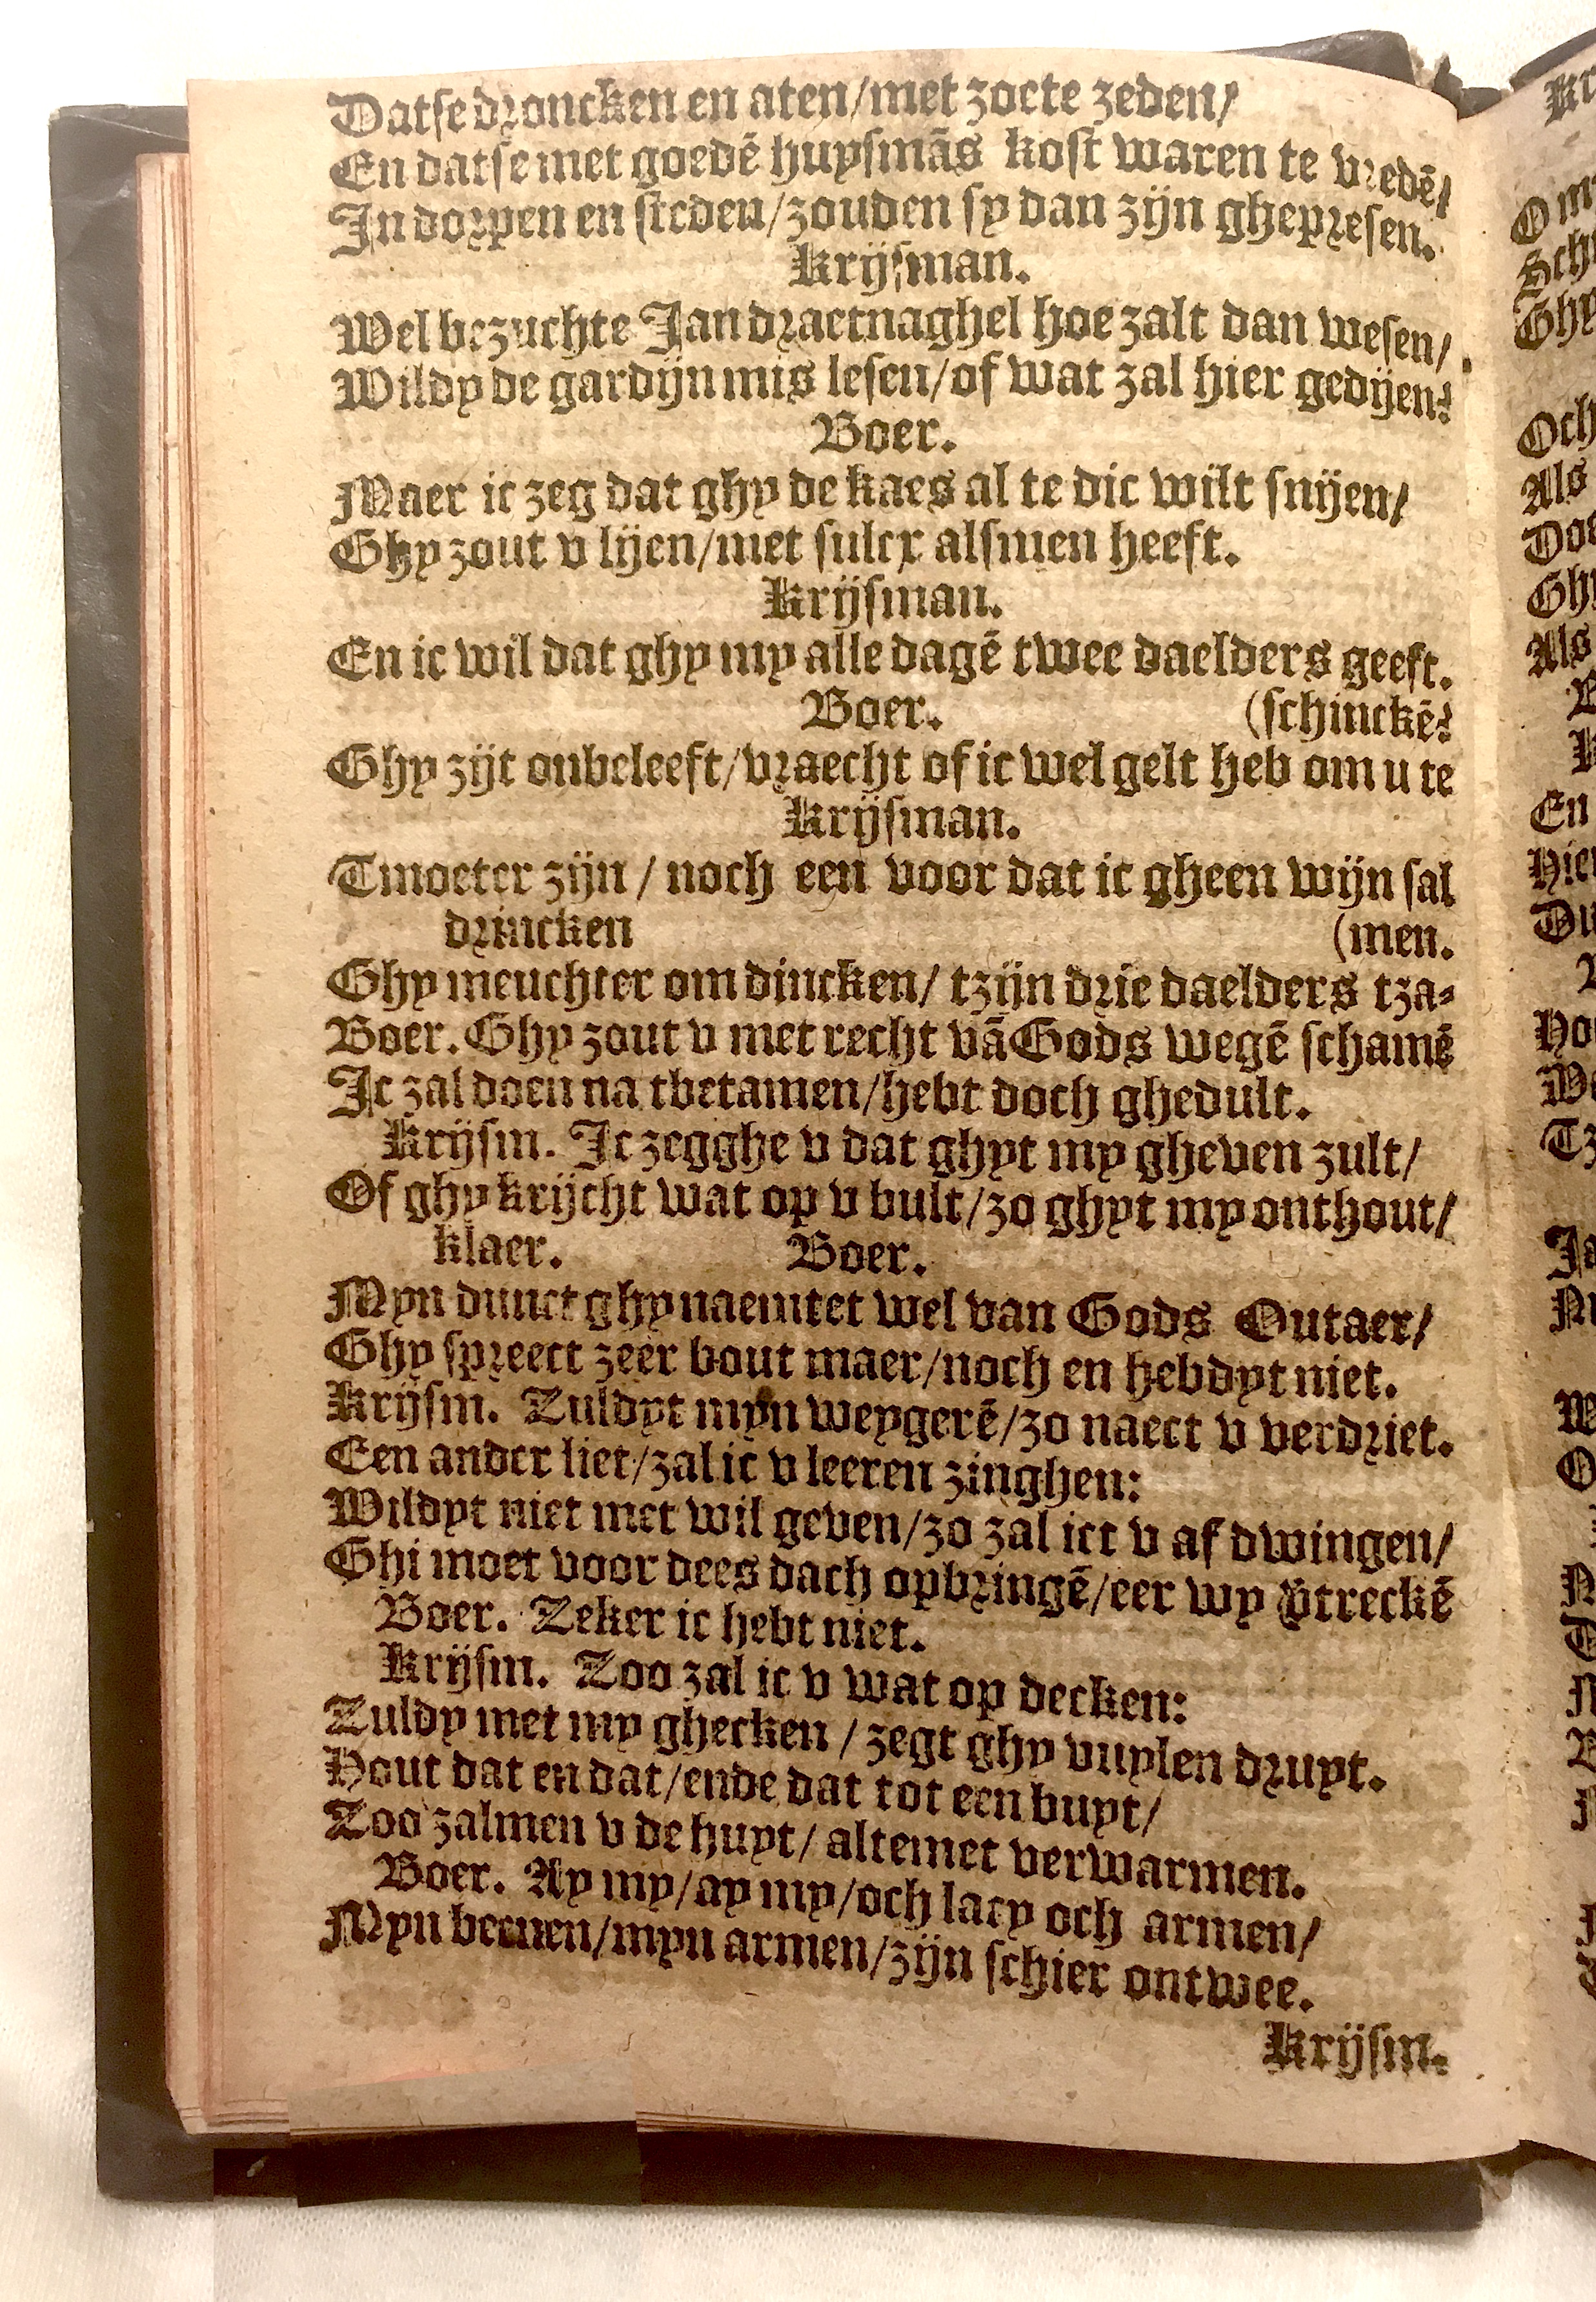 Datse droncken en aten/met zoete zeden/
En datse met goedē huysmās kost waren te vredē/
In dorpen en steden/zouden sy dan zijn ghepresen.
Krijsman.
Wel bezuchte Jan draetnaghel hoe zalt dan wesen/
Wildy de gardijn mis lesen/of wat zal hier gedijen?
Boer.
Maer ic zeg dat ghy de kaes al te dic wilt snijen/
Ghy zout v lijen/met sulcx alsmen heeft.
Krijsman.
En ic wil dat ghy my alle dagē twee daelders geeft.
Boer. (schinckē?
Ghy zijt onbeleeft/vraecht of ic wel gelt heb om u te
Krijsman.
Tmoeter zijn / noch een voor dat ic gheen wijn sal
drincken (men.
Ghy meuchter om dincken/ tzijn drie daelders tza-
Boer. Ghy zout v met recht vā Gods wegē schamē
Ic zal doen na tbetamen/hebt doch ghedult.
Krijsm. Ic zegghe v dat ghyt my gheven zult/
Of ghy krijcht wat op v bult/zo ghyt my onthout/
klaer. Boer.
Myn dunct ghy naemtet wel van Gods Outaer/
Ghy spreect zeer bout maer/noch en hebdyt niet.
Krijsm. Zuldyt myn weygerē/zo naect v verdriet.
Een ander liet/zal ic v leeren zinghen:
Wildyt niet met wil geven/zo zal ict v af dwingen/
Ghi moet voor dees dach opbringē/eer wy v̄treckē
Boer. Zeker ic hebt niet.
Krijsm. Zoo zal ic v wat op decken:
Zuldy met my ghecken / zegt ghy vuylen druyt.
Hout dat en dat/ende dat tot een buyt/
Zoo zalmen v de huyt/ altemet verwarmen.
Boer. Ay my/ay my/och lacy och armen/
Myn beenen/myn armen/zijn schier ontwee.
Krijsm.